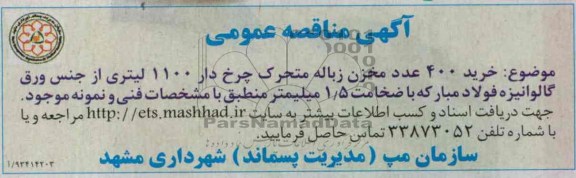 آگهی مناقصه عمومی
موضوع: خرید ۴۰۰ عدد مخزن زباله متحرک چرخ دار ۱۱۰۰ لیتری از جنس ورق
گالوانیزه فولاد مبارکه با ضخامت ۱/۵ میلیمتر منطبق با مشخصات فنی و نمونه موجود.
جهت دریافت اسناد و کسب اطلاعات بیشتر به سایت http://ets.mashhad.ir مراجعه و یا
با شماره تلفن ۳۳۸۷۳۰۵۲ تماس حاصل فرمایید.
سازمان مپ (مدیریت پسماند) شهرداری مشهد
۱/۹۳۴۱۴۲۰۳
ParsNamadData